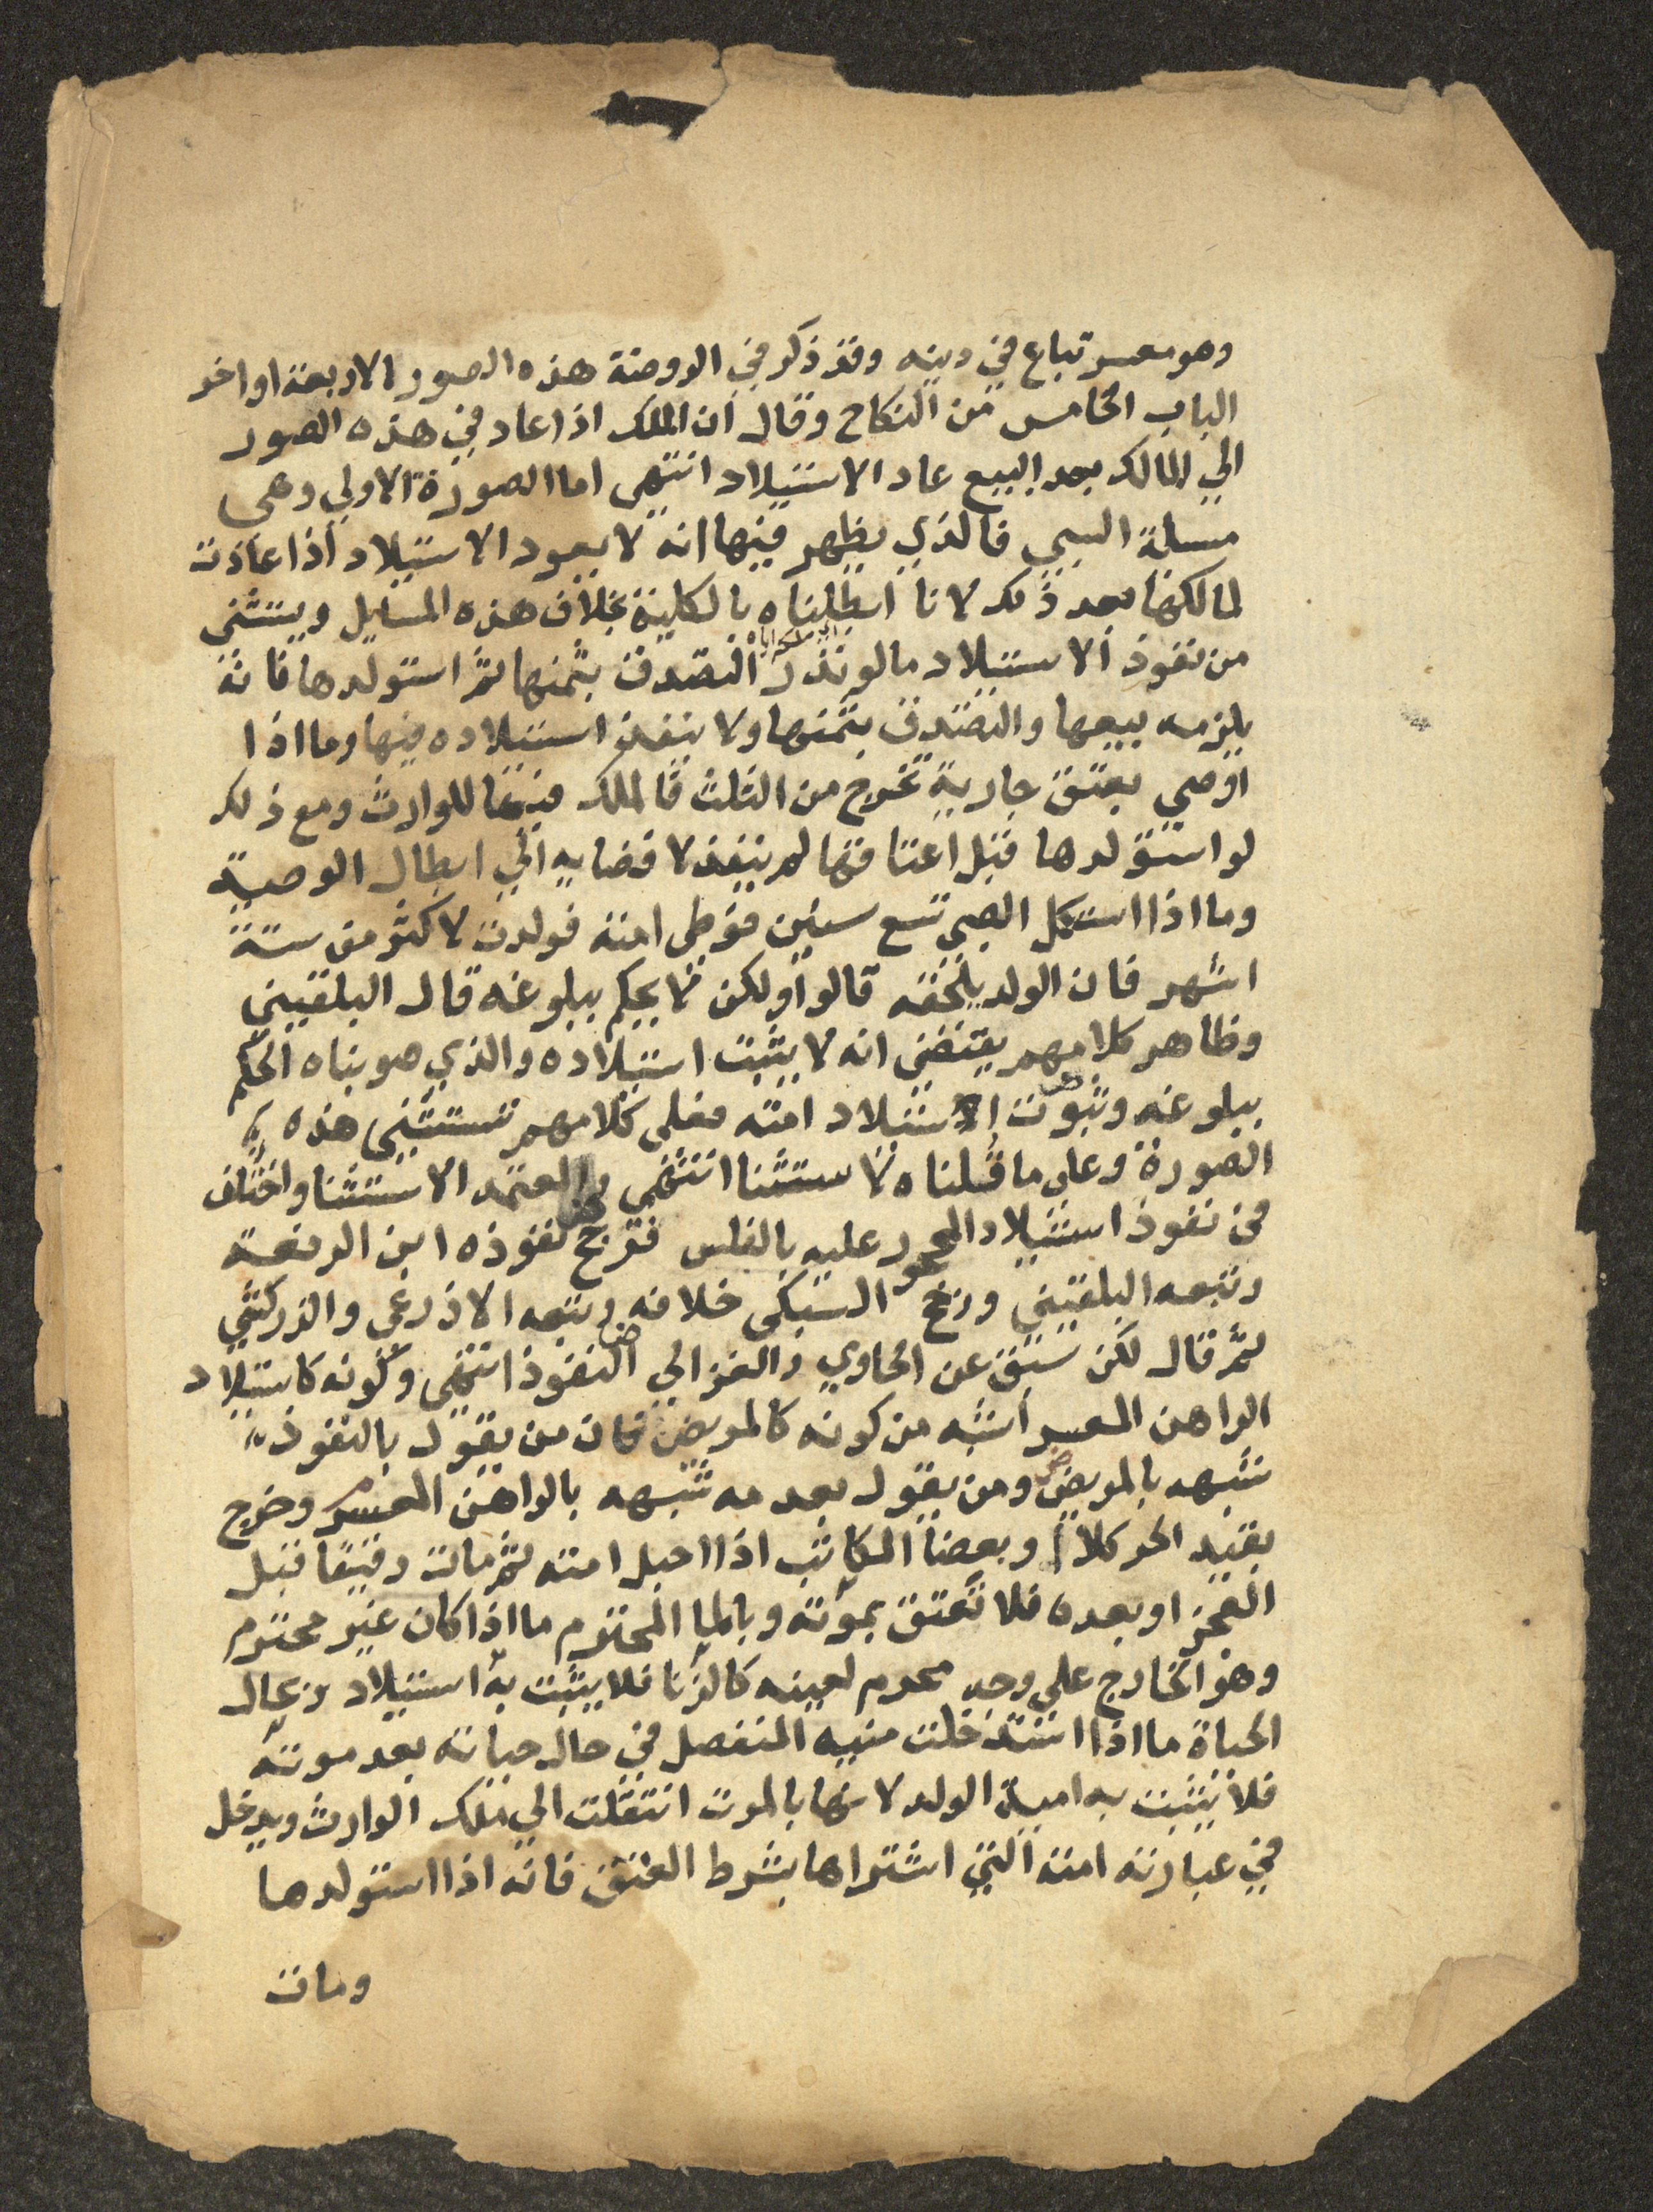 وهو معسر تباع في دينه وقد ذكر في الروضة هذه الصور الاربعة اواخر
الباب الخامس من النكاح وقال ان الملك اذا عاد في هذه الصور
الي المالك بعد البيع عاد الاستيلاد انتهى اما الصورة الاولي وهي
مسلة السبي فالذي يظهر فيها انه لا يعود الاستيلاد اذا عادت
لمالكها بعد ذلك لانا ابطلناه بالكلية بخلاف هذه المسايل ويستثنى
من نفوذ الاستيلاد ما لو نذر التصدق بثمنها ثم استولدها فانه
يلزمه بيعها والتصدق بثمنها ولا ينفذ استيلاده فيها وما اذا
اوصي بعتق جارية تخرج من الثلث فالملك فيها للوارث ومع ذلك
لو استولدها قبل اعتاقها لم ينفذ لافضايه الي ابطال الوصية
وما اذا استكمل الصبي تسع سنين فوطى امته فولدت لاكثر من ستة
اشهر فان الولد يلحقه قالوا ولكن لا يحكم ببلوغه قال البلقيني
وظاهر كلامهم يقتضي انه لا يثبت استيلاده والذي صوبناه الحكم
ببلوغه وثبوت استيلاد امته فعلى كلامهم تستثنى هذه
الصورة وعلى ما قلناه لا استثنا انتهى والمعتمد الاستثنا واختلف
في نفوذ استيلاد المحجور عليه بالفلس فرجح نفوذه ابن الرفعة
وتبعه البلقيني ورجح السبكى خلافه وتبعه الاذرعى والزركشي
ثم قال لكن سبق عن الحاوي والغزالي النفوذ انتهى وكونه كاستيلاد
الراهن المعسر اشبه من كونه كالمريض فان من يقول بالنفوذ
شبهه بالمريض ومن يقول بعدمه شبهه بالراهن المعسر وخرج
بقيد الحر كلا او بعضا المكاتب اذا احبل امته ثم مات رقيقا قبل
العجز او بعده فلا تعتق بموته وبالما المحترم ما اذا كان غير محترم
وهو الخارج على وجه محرم لعينه كالزنا فلا يثبت به استيلاد وبحال
الحياة ما اذا استدخلت منيه المنفصل في حال حياته بعد موته
فلا يثبت به امية الولد لانها بالموت انتقلت الي ملك الوارث ويدخل
في عبارته امته التي اشتراها بشرط العتق فانه اذا استولدها
ومات